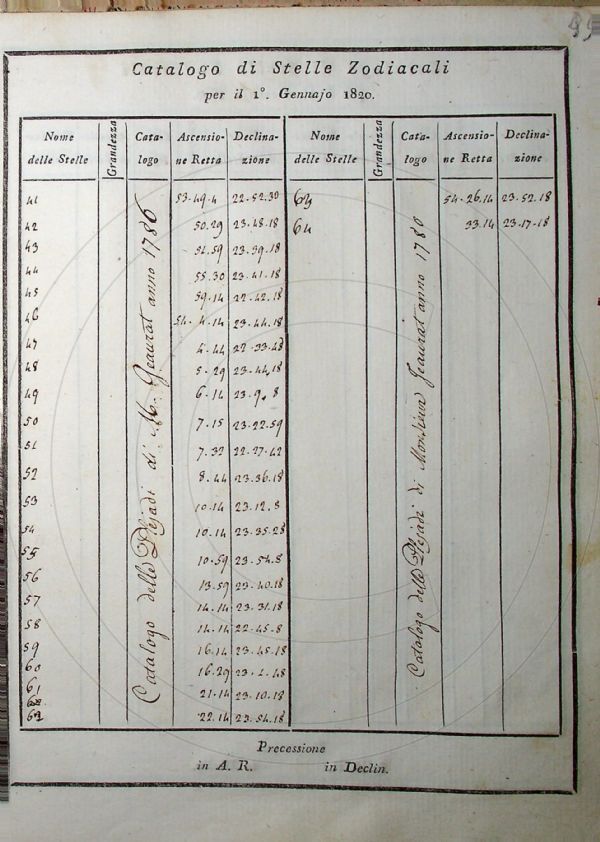 99
Catalogo di Stelle Zodiacali
per il 1º. Gennajo 1820.
Nome delle Stelle | Grandezza | Cata-logo | Ascensio-ne Retta | Declina-zione | Nome delle Stelle | Grandezza | Cata-logo | Ascensio-ne Retta | Declina-zione
Catalogo delle Plejadi di M. Jeaurat anno 1786
Catalogo delle Plejadi di Monsieur Jeaurat anno 1786
41 53.49.4 22.52.30
42 50.29 23.48.18
43 51.59 23.39.18
44 55.30 23.41.18
45 59.14 22.42.18
46 54.4.14 23.44.18
47 4.44 22.33.48
48 5.29 23.44.18
49 6.14 23.9.8
50 7.15 23.22.59
51 7.32 22.27.42
52 8.44 23.36.18
53 10.14 23.12.8
54 10.14 23.35.28
55 10.59 23.54.8
56 13.59 23.40.18
57 14.14 23.31.18
58 14.14 22.45.8
59 16.14 23.45.18
60 16.29 23.2.48
61 21.14 23.10.18
62 22.14 23.54.18
63 54.26.14 23.52.18
64 33.14 23.17.18
Precessione
in A. R. in Declin.